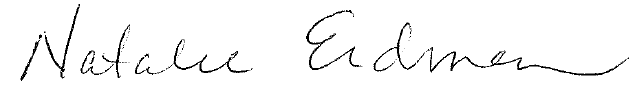 Natalie Erdman